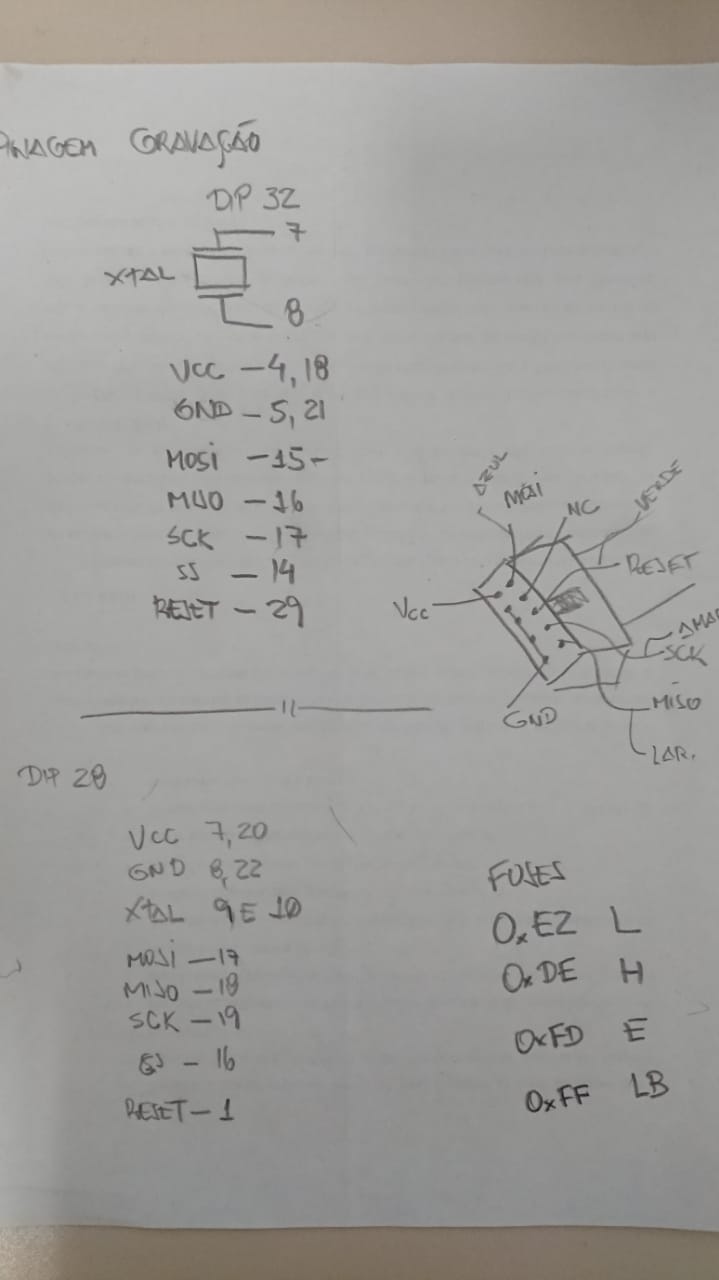 PINAGEM GRAVAÇÃO
DIP 32
7
XTAL
8
VCC – 4, 18
GND – 5, 21
MOSI – 15 –
MISO – 16
SCK – 17
SS – 14
RESET – 29
AZUL
MOSI
NC
VERDE
RESET
VCC
AMAR
SCK
MISO
GND
LAR.
DIP 28
VCC 7, 20
GND 8, 22
XTAL 9 E 10
MOSI – 17
MISO – 18
SCK – 19
SS – 16
RESET – 1
FUSES
0xE2 L
0xDE H
0xFD E
0xFF LB